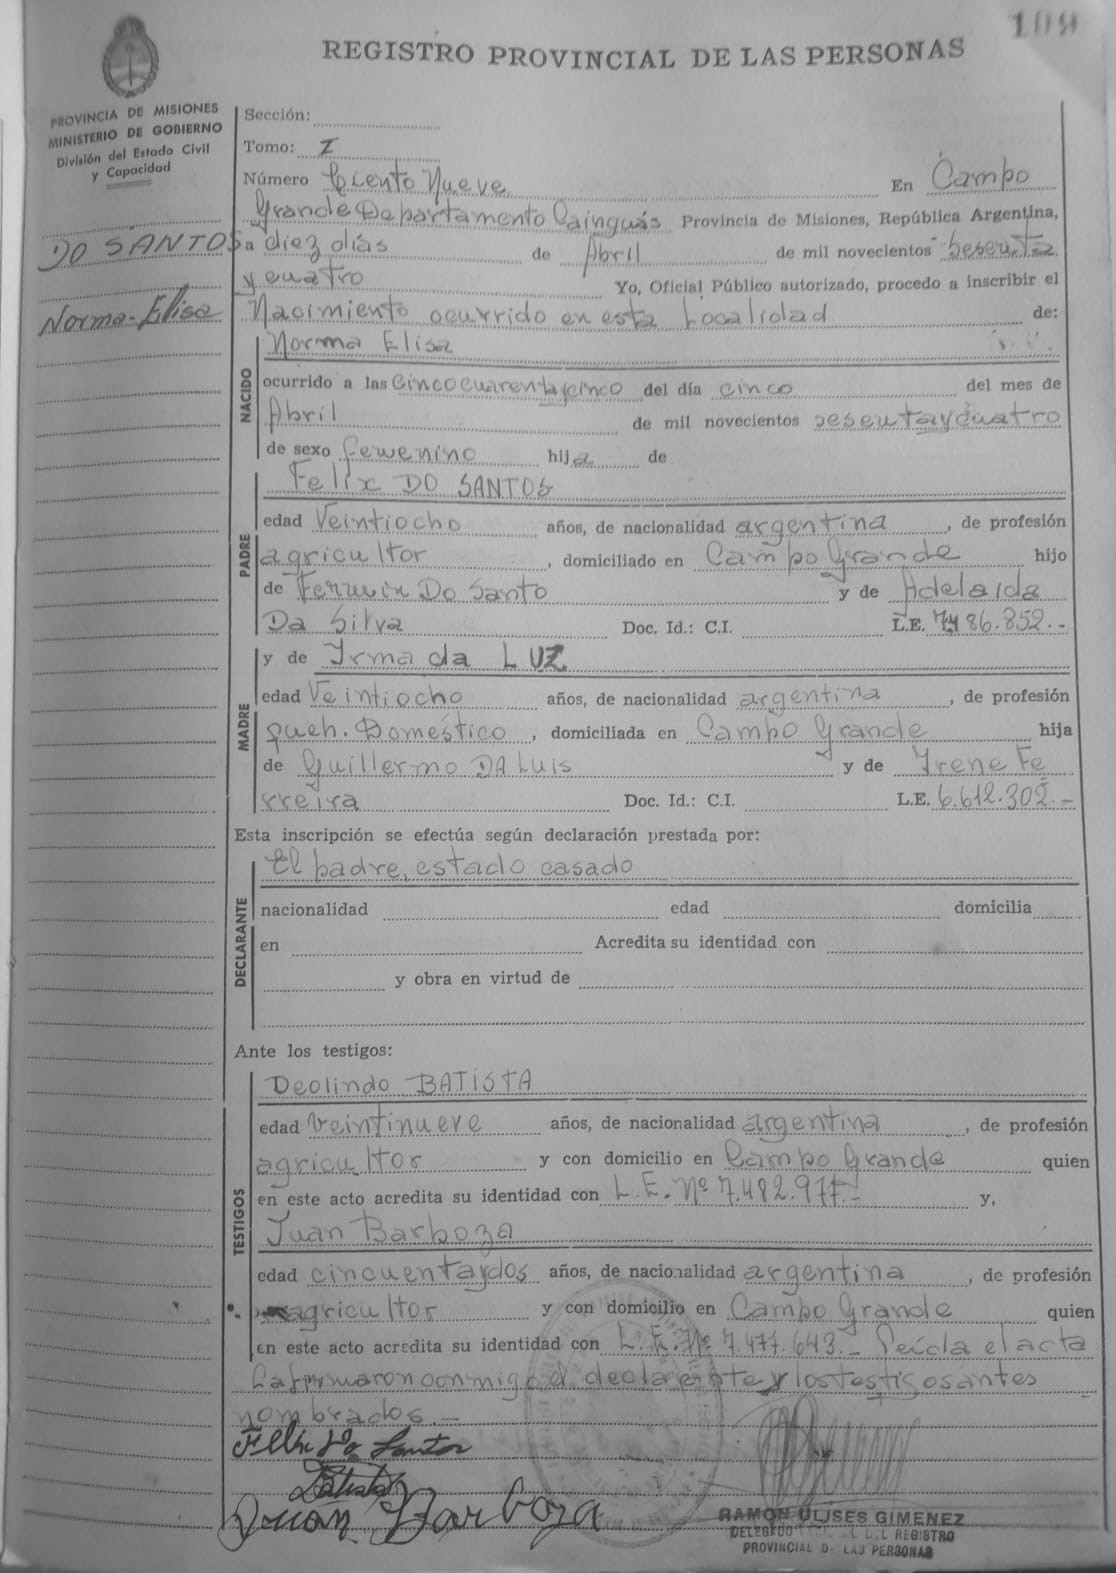 109
REGISTRO PROVINCIAL DE LAS PERSONAS
PROVINCIA DE MISIONES
MINISTERIO DE GOBIERNO
División del Estado Civil
y Capacidad
DO SANTOS
Norma-Elisa
Sección:
Tomo: I
Número Ciento Nueve En Campo
Grande Departamento Cainguás Provincia de Misiones, República Argentina,
a diez días de Abril de mil novecientos sesenta
y cuatro Yo, Oficial Público autorizado, procedo a inscribir el
Nacimiento ocurrido en esta Localidad de:
NACIDO
Norma Elisa
ocurrido a las Cinco cuarenta y cinco del día cinco del mes de
Abril de mil novecientos sesenta y cuatro
de sexo femenino hija de
PADRE
Felix DO SANTOS
edad Veintiocho años, de nacionalidad argentina, de profesión
agricultor, domiciliado en Campo Grande hijo
de Fermin Do Santo y de Adelaida
Da Silva Doc. Id.: C.I. L.E. 7.486.852.-
MADRE
y de Irma da LUZ
edad Veintiocho años, de nacionalidad argentina, de profesión
queh. Doméstico, domiciliada en Campo Grande hija
de Guillermo DA Luis y de Irene Fe
rreira Doc. Id.: C.I. L.E. 6.612.302.-
Esta inscripción se efectúa según declaración prestada por:
DECLARANTE
El padre, estado casado
nacionalidad edad domicilia
en Acredita su identidad con
y obra en virtud de
Ante los testigos:
TESTIGOS
Deolindo BATISTA
edad Veintinueve años, de nacionalidad argentina, de profesión
agricultor y con domicilio en Campo Grande quien
en este acto acredita su identidad con L.E. Nº 7.482.977.- y,
Juan Barboza
edad cincuenta y dos años, de nacionalidad argentina, de profesión
agricultor y con domicilio en Campo Grande quien
en este acto acredita su identidad con L.E. Nº 7.477.643.- Leída el acta
La firmaron conmigo el declarante y los testigos antes
nombrados.-
Felix Do Santos
Batista
Juan Barboza
RAMON ULISES GIMENEZ
DELEGADO REGISTRO
PROVINCIAL DE LAS PERSONAS